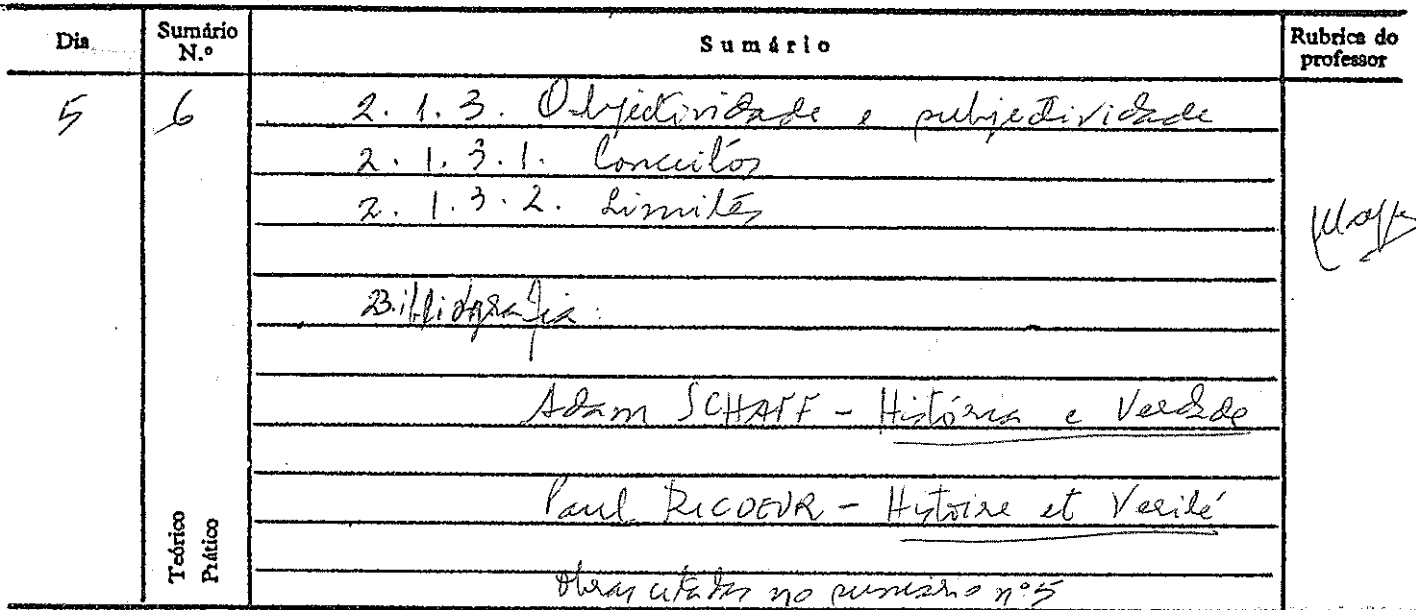 Dia Sumário N.º Sumário Rubrica do professor
5 6 2.1.3. Objectividade e subjectividade
2.1.3.1. Conceitos
2.1.3.2. Limites
Bibliografia:
Adam SCHAFF - História e Verdade
Paul RICOEUR - Histoire et Verité
Obras citadas no sumário nº 5
Teórico
Prático